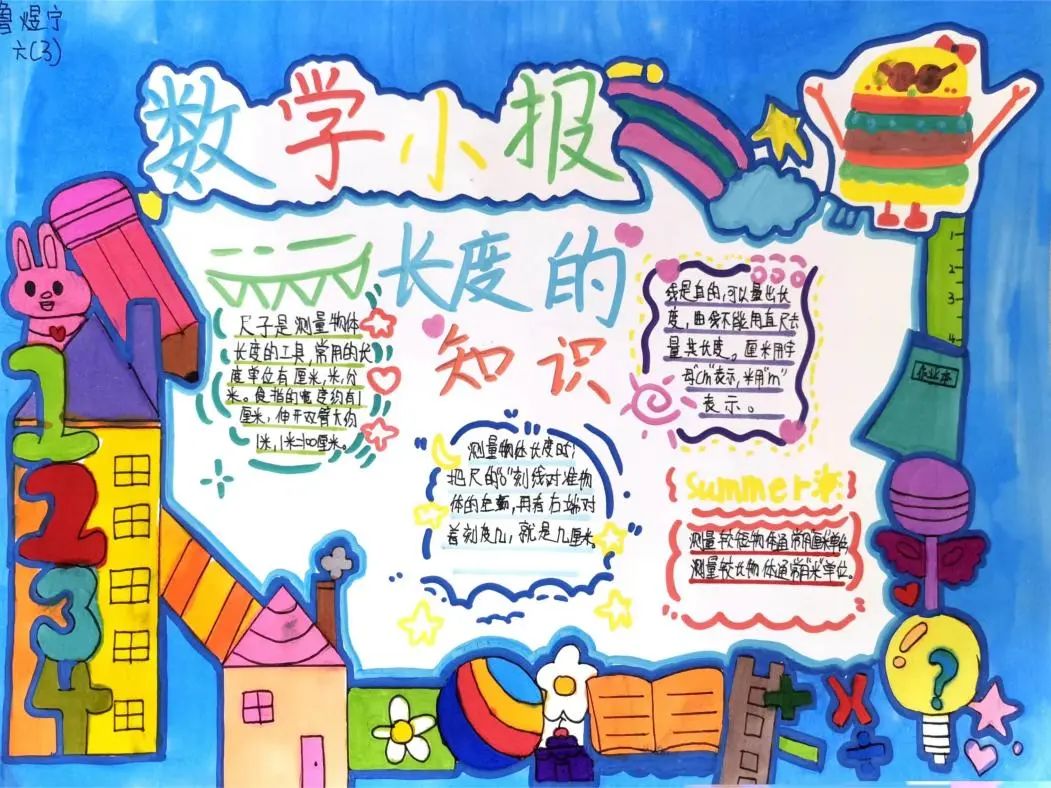 鲁煜宁
六(3)
数学小报
长度的
知识
尺子是测量物体
长度的工具,常用的长
度单位有厘米,米,分
米。食指的宽度约有1
厘米,伸开双臂大约
1米,1米=100厘米。
测量物体长度时,
把尺的"0"刻线对准物
体的左端,再看右端对
着刻度几,就是几厘米。
线是直的,可以量出长
度,曲线不能用直尺去
量其长度。厘米用字
母"cm"表示,米用"m"
表示。
Summer
测量较短物体通常用"厘米"单位,
测量较长物体通常用"米"单位。
作业本
1
2
3
4
1
2
3
4
?